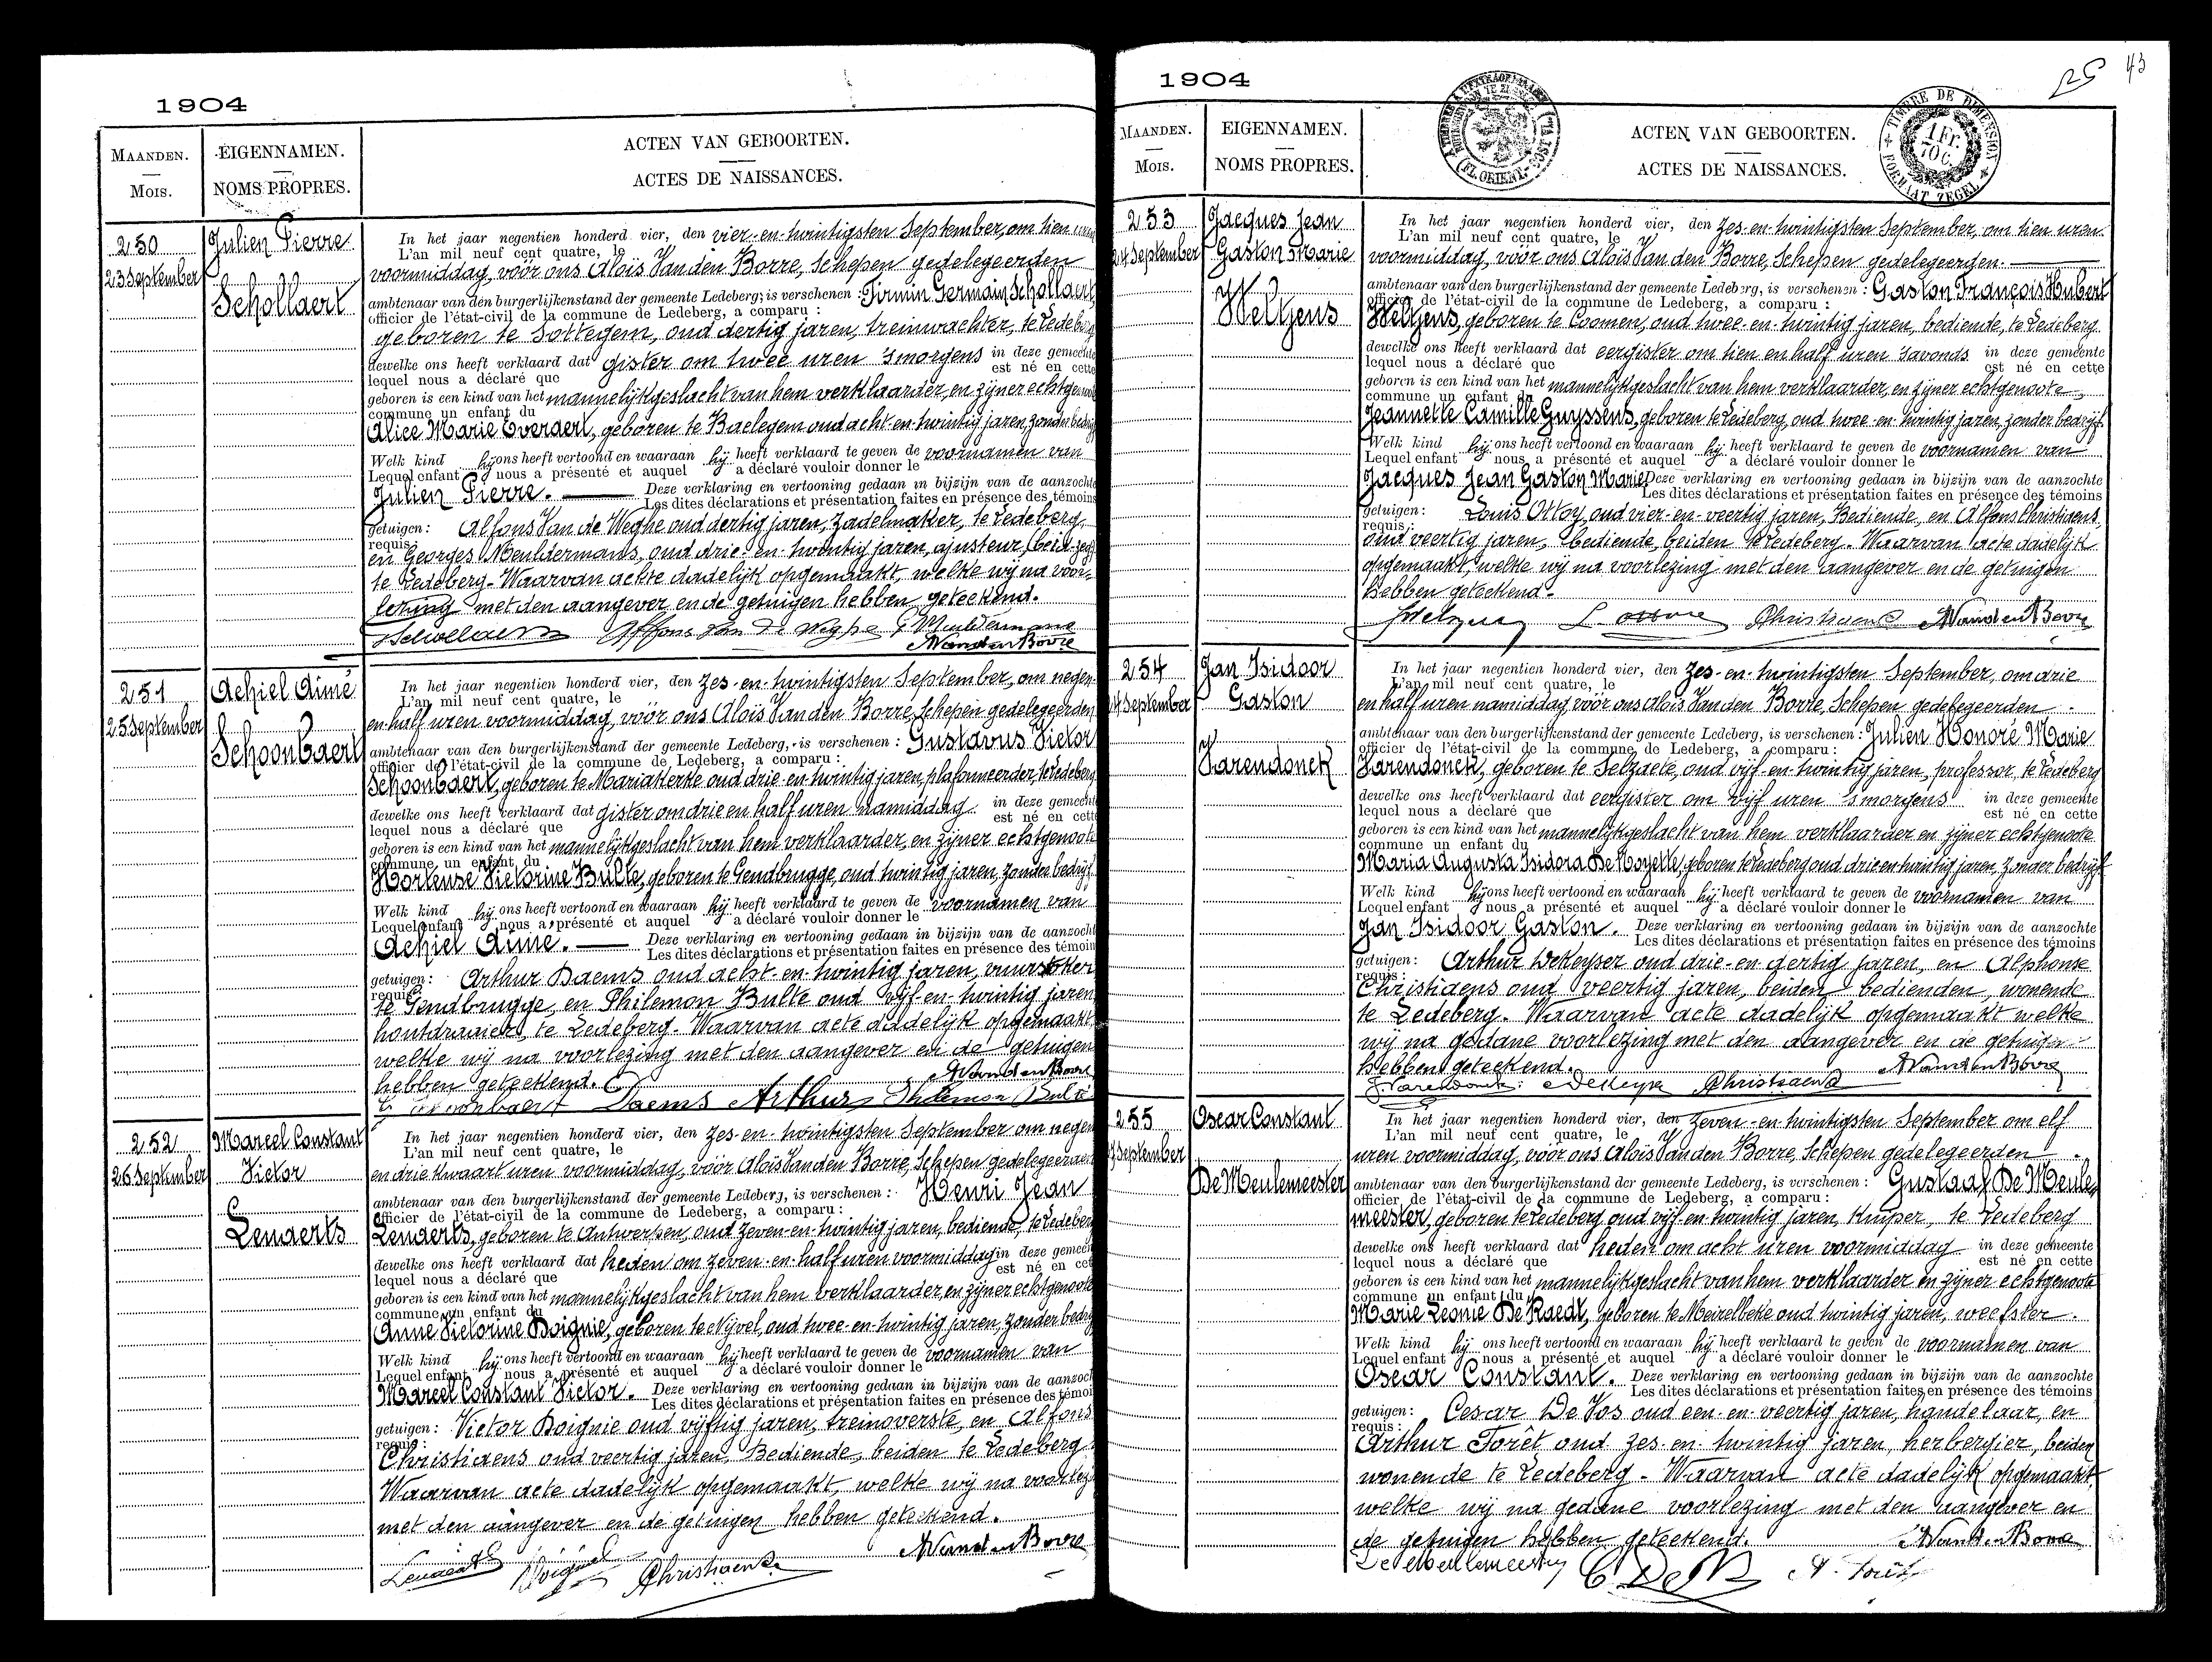 1904
MAANDEN.
Mois.
EIGENNAMEN.
NOMS PROPRES.
ACTEN VAN GEBOORTEN.
ACTES DE NAISSANCES.
250
23 September
Julien Pierre
Schollaert
In het jaar negentien honderd vier, den vier-en-twintigsten September, om tien uren
L'an mil neuf cent quatre, le
voormiddag, voór ons Aloïs Van den Borre, Schepen gedelegeerden
ambtenaar van den burgerlijkenstand der gemeente Ledeberg, is verschenen : Firmin Germain Schollaert,
officier de l'état-civil de la commune de Ledeberg, a comparu :
geboren te Sottegem, oud dertig jaren, treinwachter, te Ledeberg
dewelke ons heeft verklaard dat gister om twee uren 'smorgens in deze gemeente
lequel nous a déclaré que est né en cette
geboren is een kind van het mannelijkgeslacht van hem verklaarder, en zijner echtgenoote
commune un enfant du
Alice Marie Everaert, geboren te Baelegem oud acht-en-twintig jaren, zonder bedrijf
Welk kind hij ons heeft vertoond en waaraan hij heeft verklaard te geven de voornamen van
Lequel enfant nous a présenté et auquel a déclaré vouloir donner le
Julien Pierre. Deze verklaring en vertooning gedaan in bijzijn van de aanzochte
Les dites déclarations et présentation faites en présence des témoins
getuigen: Alfons Van de Weghe oud dertig jaren, zadelmaker, te Ledeberg,
requis:
en Georges Meuldermans, oud drie-en-twintig jaren, ajusteur,
te Ledeberg - Waarvanackte dadelijk opgemaakt, welke wij na voor-
lezing met den aangever en de getuigen hebben geteekend.
Schollaert Alfons Van de Weghe G Meuldermans
AVandenBorre
251
25 September
Achiel Aimé
Schoonbaert
In het jaar negentien honderd vier, den zes-en-twintigsten September, om negen-
L'an mil neuf cent quatre, le
en-half uren voormiddag, vóór ons Aloïs Van den Borre, Schepen gedelegeerden
ambtenaar van den burgerlijkenstand der gemeente Ledeberg, is verschenen : Gustavus Victor
officier de l'état-civil de la commune de Ledeberg, a comparu :
Schoonbaert, geboren te Mariakerke oud drie-en-twintig jaren, plafonneerder, te Ledeberg
dewelke ons heeft verklaard dat gister om drie en half uren namiddag in deze gemeente
lequel nous a déclaré que est né en cette
geboren is een kind van het mannelijkgeslacht van hem verklaarder, en zijner echtgenoote
commune un enfant du
Hortense Victorine Bulte, geboren te Gendbrugge, oud twintig jaren, zonder bedrijf.
Welk kind hij ons heeft vertoond en waaraan hij heeft verklaard te geven de voornamen van
Lequel enfant nous a présenté et auquel a déclaré vouloir donner le
Achiel Aimé. Deze verklaring en vertooning gedaan in bijzijn van de aanzocht
Les dites déclarations et présentation faites en présence des témoin
getuigen: Arthur Daems oud acht-en-twintig jaren, vuurstoker
requis:
te Gendbrugge, en Philemon Bulte oud vijf-en-twintig jaren
houtdraaier, te Ledeberg. Waarvan acte dadelijk opgemaakt
welke wij na voorlezing met den aangever en de getuigen
hebben geteekend. AVandenBorre
G Schoonbaert Daems Arthur Philemon Bulte
252
26 September
Marcel Constant
Victor
Lenaerts
In het jaar negentien honderd vier, den zes-en-twintigsten September om negen
L'an mil neuf cent quatre, le
en drie kwaart uren voormiddag, vóór Aloïs Van den Borre, Schepen gedelegeerden
ambtenaar van den burgerlijkenstand der gemeente Ledeberg, is verschenen : Henri Jean
officier de l'état-civil de la commune de Ledeberg, a comparu :
Lenaerts, geboren te Antwerpen, oud zeven-en-twintig jaren, bediende, te Ledeberg
dewelke ons heeft verklaard dat heden om zeven-en-half uren voormiddag in deze gemeen
lequel nous a déclaré que est né en cet
geboren is een kind van het mannelijkgeslacht van hem verklaarder en zijner echtgenoote
commune un enfant du
Anne Victorine Doignie, geboren te Nijvel, oud twee-en-twintig jaren, zonder bedrijf
Welk kind hij ons heeft vertoond en waaraan hij heeft verklaard te geven de voornamen van
Lequel enfant nous a présenté et auquel a déclaré vouloir donner le
Marcel Constant Victor. Deze verklaring en vertooning gedaan in bijzijn van de aanzoch
Les dites déclarations et présentation faites en présence des témoi
getuigen: Victor Doignie oud vijftig jaren, treinoverste, en Alfons
requis:
Christiaens oud veertig jaren, Bediende, beiden te Ledeberg.
Waarvan acte dadelijk opgemaakt, welke wij na voorlezi
met den aangever en de getuigen hebben geteekend.
Lenaerts Doignie Christiaens AVandenBorre
1904
25
43
TIMBRE DE DIMENSION
1 FR.
70 C.
FORMAAT ZEGEL
MAANDEN.
Mois.
EIGENNAMEN.
NOMS PROPRES.
ACTEN VAN GEBOORTEN.
ACTES DE NAISSANCES.
253
24 September
Jacques Jean
Gaston Marie
Weltjens
In het jaar negentien honderd vier, den zes-en-twintigsten September, om tien uren
L'an mil neuf cent quatre, le
voormiddag, vóór ons Aloïs Van den Borre, Schepen gedelegeerden
ambtenaar van den burgerlijkenstand der gemeente Ledeberg, is verschenen : Gaston François Hubert
officier de l'état-civil de la commune de Ledeberg, a comparu :
Weltjens, geboren te Coomen, oud twee-en-twintig jaren, bediende, te Ledeberg
dewelke ons heeft verklaard dat eergister om tien en half uren 'savonds in deze gemeente
lequel nous a déclaré que est né en cette
geboren is een kind van het mannelijkgeslacht van hem verklaarder, en zijner echtgenoote
commune un enfant du
Jeannette Camille Guyssens, geboren te Ledeberg, oud twee-en-twintig jaren, zonder bedrijf.
Welk kind hij ons heeft vertoond en waaraan hij heeft verklaard te geven de voornamen van
Lequel enfant nous a présenté et auquel hij a déclaré vouloir donner le
Jacques Jean Gaston Marie Deze verklaring en vertooning gedaan in bijzijn van de aanzochte
Les dites déclarations et présentation faites en présence des témoins
getuigen: Louis Ottoy, oud vier-en-veertig jaren, Bediende, en Alfons Christiaens
requis:
oud veertig jaren, bediende, beiden te Ledeberg. Waarvan acte dadelijk
opgemaakt, welke wij na voorlezing met den aangever en de getuigen
hebben geteekend.
Christiaens AVandenBorre
254
24 September
Jan Isidoor
Gaston
Varendonck
In het jaar negentien honderd vier, den zes-en-twintigsten September, om drie
L'an mil neuf cent quatre, le
en half uren namiddag, vóór ons Aloïs Van den Borre, Schepen gedelegeerden
ambtenaar van den burgerlijkenstand der gemeente Ledeberg, is verschenen : Julien Honoré Marie
officier de l'état-civil de la commune de Ledeberg, a comparu :
Varendonck, geboren te Selzaete, oud vijf-en-twintig jaren, professor, te Ledeberg
dewelke ons heeft verklaard dat eergister om vijf uren 'smorgens in deze gemeente
lequel nous a déclaré que est né en cette
geboren is een kind van het mannelijkgeslacht van hem verklaarder en zijner echtgenoote
commune un enfant du
Maria Augusta Isidora De Moyette, geboren te Ledeberg oud drie-en-twintig jaren, zonder bedrijf
Welk kind hij ons heeft vertoond en waaraan hij heeft verklaard te geven de voornamen van
Lequel enfant nous a présenté et auquel a déclaré vouloir donner le
Jan Isidoor Gaston. Deze verklaring en vertooning gedaan in bijzijn van de aanzochte
Les dites déclarations et présentation faites en présence des témoins
getuigen: Arthur DeKeyser oud drie-en-dertig jaren, en Alphonse
requis:
Christiaens oud veertig jaren, beiden bedienden, wonende
te Ledeberg. Waarvan acte dadelijk opgemaakt welke
wij na gedane voorlezing met den aangever en de getuigen
hebben geteekend. AVandenBorre
J Varendonck ADeKeyser Christiaens
255
September
Oscar Constant
De Meulemeester
In het jaar negentien honderd vier, den zeven-en-twintigsten September om elf
L'an mil neuf cent quatre, le
uren voormiddag, vóór ons Aloïs Van den Borre, Schepen gedelegeerden
ambtenaar van den burgerlijkenstand der gemeente Ledeberg, is verschenen : Gustaaf De Meule
officier de l'état-civil de la commune de Ledeberg, a comparu :
meester, geboren te Ledeberg oud vijf-en-twintig jaren, kuiper, te Ledeberg
dewelke ons heeft verklaard dat heden om acht uren voormiddag in deze gemeente
lequel nous a déclaré que est né en cette
geboren is een kind van het mannelijkgeslacht van hem verklaarder en zijner echtgenoote
commune un enfant du
Marie Leonie De Raedt, geboren te Meirelbeke oud twintig jaren, weefster.
Welk kind hij ons heeft vertoond en waaraan hij heeft verklaard te geven de voornamen van
Lequel enfant nous a présenté et auquel a déclaré vouloir donner le
Oscar Constant. Deze verklaring en vertooning gedaan in bijzijn van de aanzochte
Les dites déclarations et présentation faites en présence des témoins
getuigen: Cesar De Vos oud een-en-veertig jaren, handelaar, en
requis:
Arthur Forêt oud zes-en-twintig jaren, herbergier, beiden
wonende te Ledeberg - Waarvan acte dadelijk opgemaakt,
welke wij na gedane voorlezing met den aangever en
de getuigen hebben geteekend. AVandenBorre
De Meulemeester